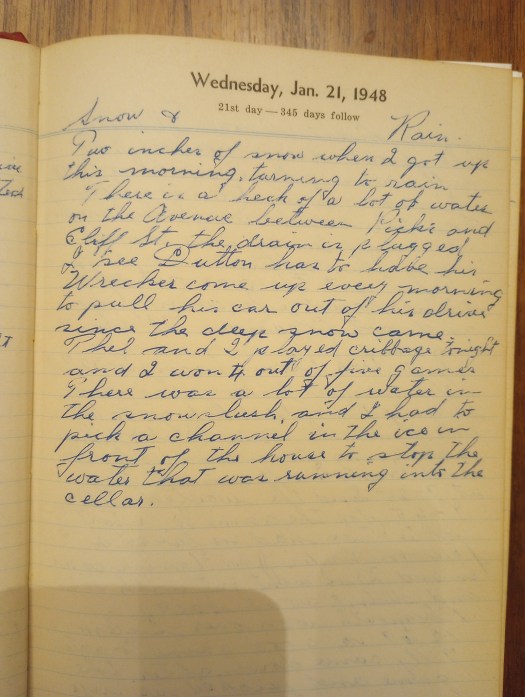 Wednesday, Jan. 21, 1948
21st day — 345 days follow
Snow & Rain.
Two inches of snow when I got up
this morning, turning to rain
There is a heck of a lot of water
on the Avenue between Pick's and
Cliff St, the drain is plugged
I see Dutton has to have his
Wrecker come up every morning
to pull his car out of his drive
since the deep snow came.
Phel and I played cribbage tonight
and I won 4 out of five games
There was a lot of water in
the snow slush, and I had to
pick a channel in the ice in
front of the house to stop the
water that was running into the
cellar.